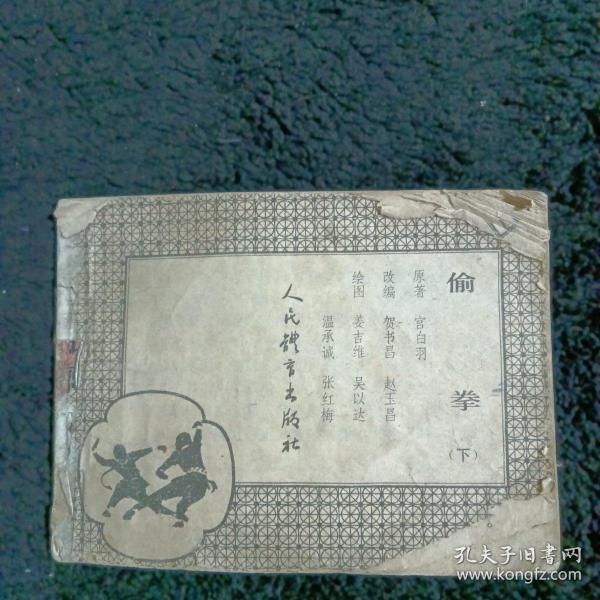 偷拳(下)
原著 宫白羽
改编 贺书昌 赵玉昌
绘图 姜吉维 吴以达
温承诚 张红梅
人民體育出版社
孔夫子旧书网
www.kongfz.com